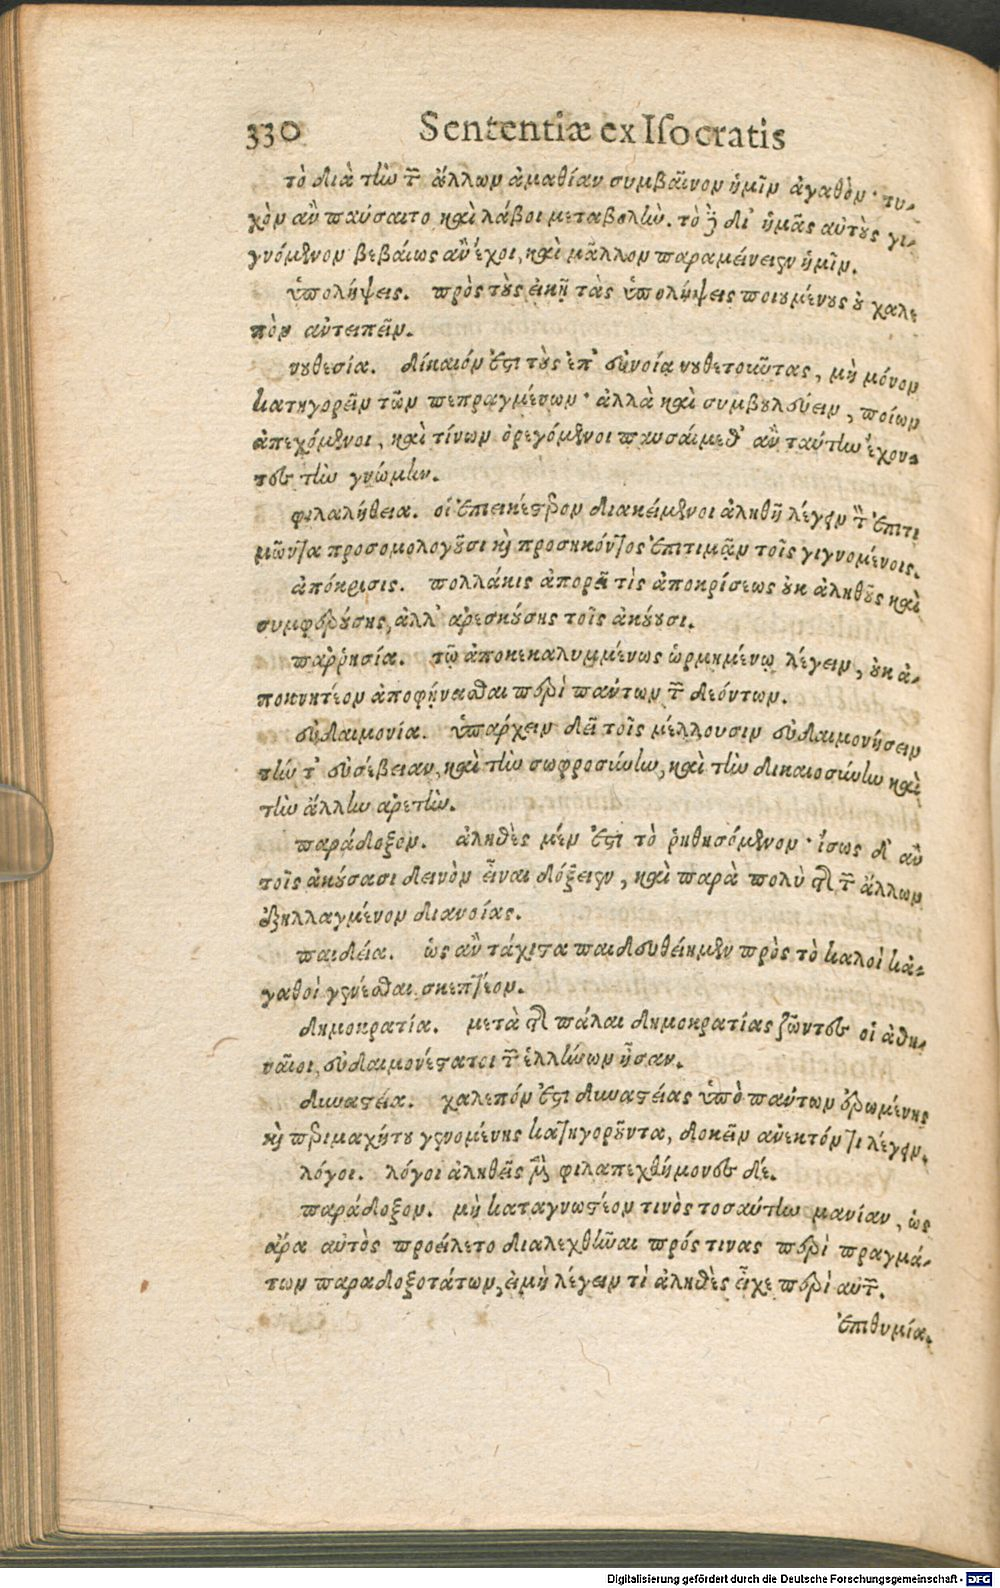 330 Sententiæ ex Iſocratis
τὸ διὰ τὴν τῶν ἄλλων ἀμαθίαν συμβαῖνον ἡμῖν ἀγαθὸν· τυ-
χὸν ἂν παύσαιτο καὶ λάβοι μεταβολὴν. τὸ δὲ δι' ἡμᾶς αὐτοὺς γι-
γνόμενον βεβαίως ἂν ἔχοι, καὶ μᾶλλον παραμείνειεν ἡμῖν.
ὑπολήψεις. πρὸς τοὺς εἰκῆ τὰς ὑπολήψεις ποιουμένους οὐ χαλε
πὸν ἀντειπεῖν.
νουθεσία. δίκαιόν ἐστι τοὺς ἐπ' εὐνοίᾳ νουθετοῦντας, μὴ μόνον
κατηγορεῖν τῶν πεπραγμένων· ἀλλὰ καὶ συμβουλεύειν, ποίων
ἀπεχόμενοι, καὶ τίνων ὀρεγόμενοι παυσαίμεθ' ἂν ταύτην ἔχον-
τες τὴν γνώμην.
φιλαλήθεια. οἱ ἐπιεικέστερον διακείμενοι ἀληθῆ λέγειν τὸν ἐπιτι
μῶντα προσομολογοῦσι καὶ προσηκόντως ἐπιτιμᾷν τοῖς γιγνομένοις.
ἀπόκρισις. πολλάκις ἀπορεῖ τὶς ἀποκρίσεως οὐκ ἀληθοῦς καὶ
συμφερούσης, ἀλλ' ἀρεσκούσης τοῖς ἀκούουσι.
παῤῥησία. τῷ ἀποκεκαλυμμένως ὡρμημένῳ λέγειν, οὐκ ἀ-
ποκνητέον ἀποφήνασθαι περὶ πάντων τῶν δεόντων.
εὐδαιμονία. ὑπάρχειν δεῖ τοῖς μέλλουσιν εὐδαιμονήσειν
τήν τ' εὐσέβειαν, καὶ τὴν σωφροσύνην, καὶ τὴν δικαιοσύνην καὶ
τὴν ἄλλην ἀρετὴν.
παράδοξον. ἀληθὲς μέν ἐστι τὸ ῥηθησόμενον· ἴσως δ' ἂν
τοῖς ἀκούσασι δεινὸν εἶναι δόξειεν, καὶ παρὰ πολὺ τῆς τῶν ἄλλων
ἐξηλλαγμένον διανοίας.
παιδεία. ὡς ἂν τάχιστα παιδευθείημεν πρὸς τὸ καλοὶ κἀ-
γαθοὶ γενέσθαι σκεπτέον.
δημοκρατία. μετὰ τῆς πάλαι δημοκρατίας ζῶντες οἱ ἀθη-
ναῖοι, εὐδαιμονέστατοι τῶν ἑλλήνων ἦσαν.
δυναστεία. χαλεπόν ἐστι δυναστείας ὑπὸ πάντων ἐρωμένης
καὶ περιμαχήτου γενομένης κατηγοροῦντα, δοκεῖν ἀνεκτόν τι λέγειν.
λόγοι. λόγοι ἀληθεῖς μὲν φιλαπεχθήμονες δέ.
παράδοξον. μὴ καταγνωστέον τινὸς τοσαύτην μανίαν, ὡς
ἄρα αὐτὸς προείλετο διαλεχθῆναι πρός τινας περὶ πραγμά-
των παραδοξοτάτων, εἰ μὴ λέγειν τὶ ἀληθὲς εἶχε περὶ αὐτῶν.
ἐπιθυμία.
Digitalisierung gefördert durch die Deutsche Forschungsgemeinschaft - DFG